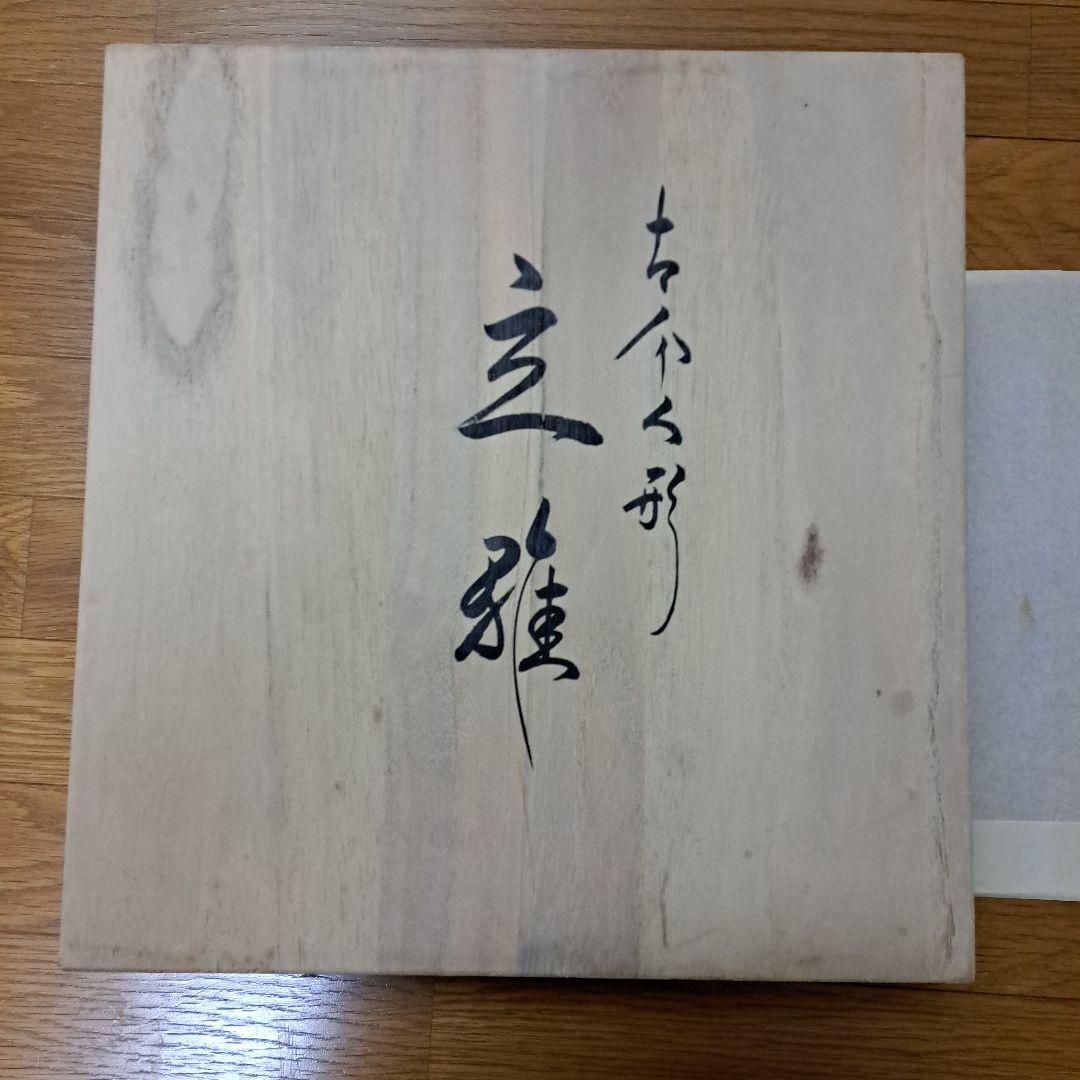 古布人形
立雛